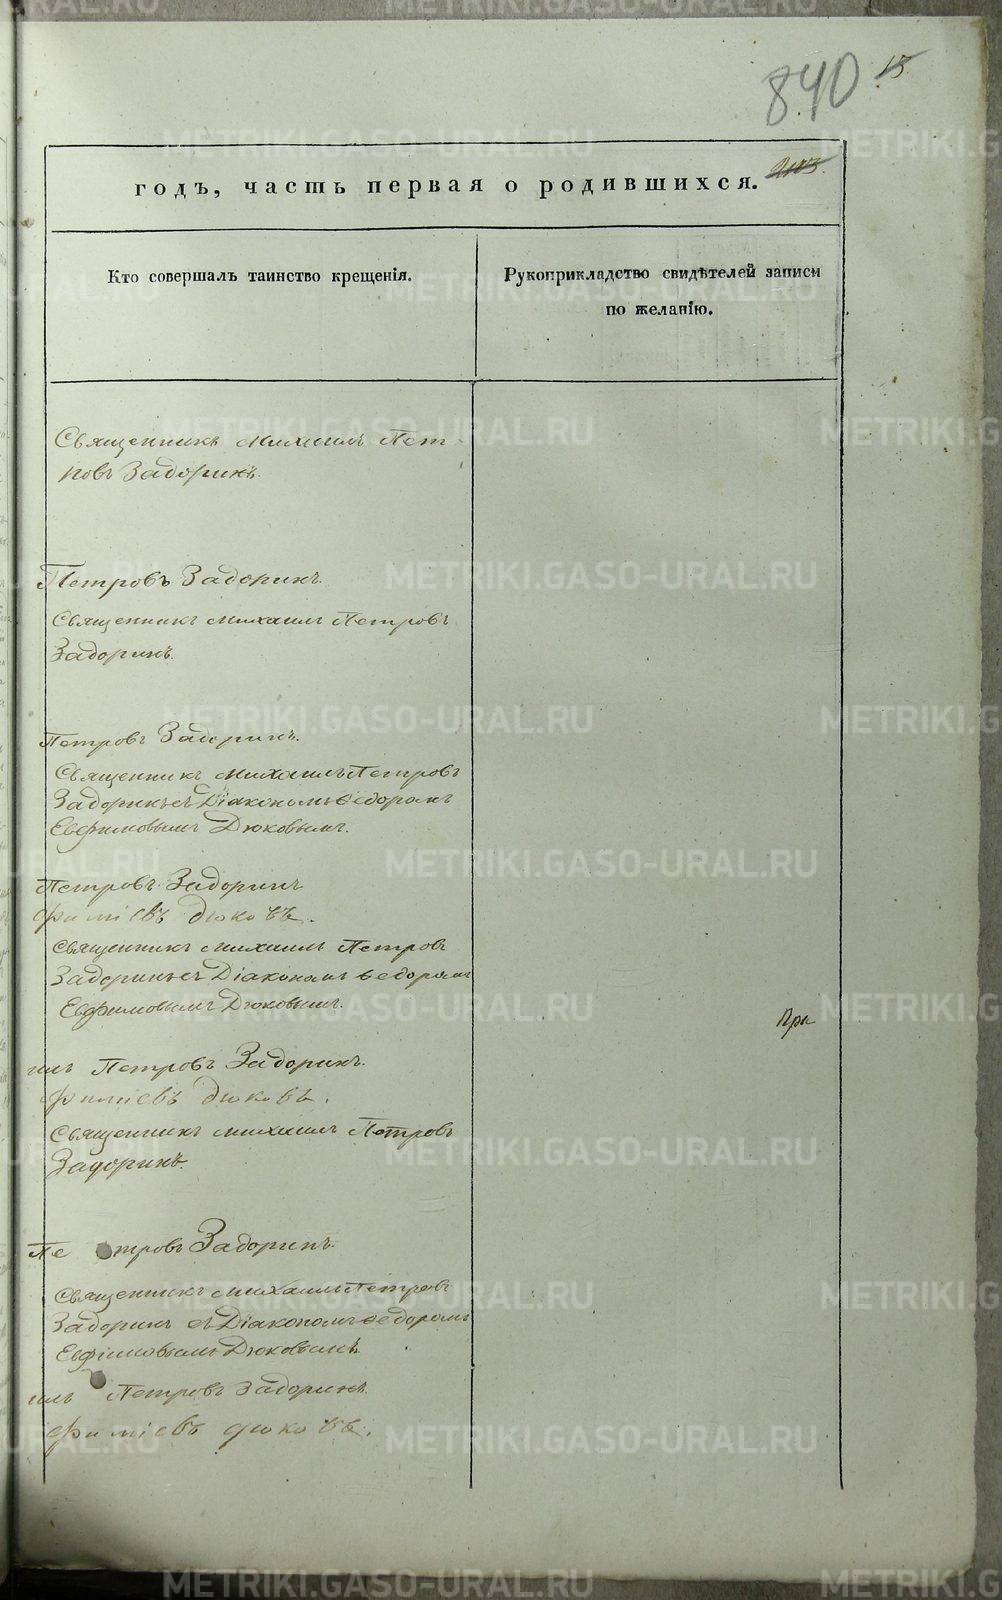 840 15
годъ, часть первая о родившихся.
Кто совершалъ таинство крещенія.
Рукоприкладство свидѣтелей записи
по желанію.
Священникъ Михаилъ Пет-
ровъ Задоринъ.
Петровъ Задоринъ.
Священникъ Михаилъ Петровъ
Задоринъ.
Петровъ Задоринъ.
Священникъ Михаилъ Петровъ
Задоринъ съ Діакономъ Ѳедоромъ
Евфимовымъ Дюковымъ.
Петровъ Задоринъ
фиміевъ Дюковъ.
Священникъ Михаилъ Петровъ
Задоринъ съ Діакономъ Ѳедоромъ
Евфимовымъ Дюковымъ.
При
илъ Петровъ Задоринъ.
фиміевъ Дюковъ.
Священникъ Михаилъ Петровъ
Задоринъ.
Пе тровъ Задоринъ.
Священникъ Михаилъ Петровъ
Задоринъ съ Діакономъ Ѳедоромъ
Евфимовымъ Дюковымъ.
илъ Петровъ Задоринъ.
фиміевъ Дюковъ.
METRIKI.GASO-URAL.RU